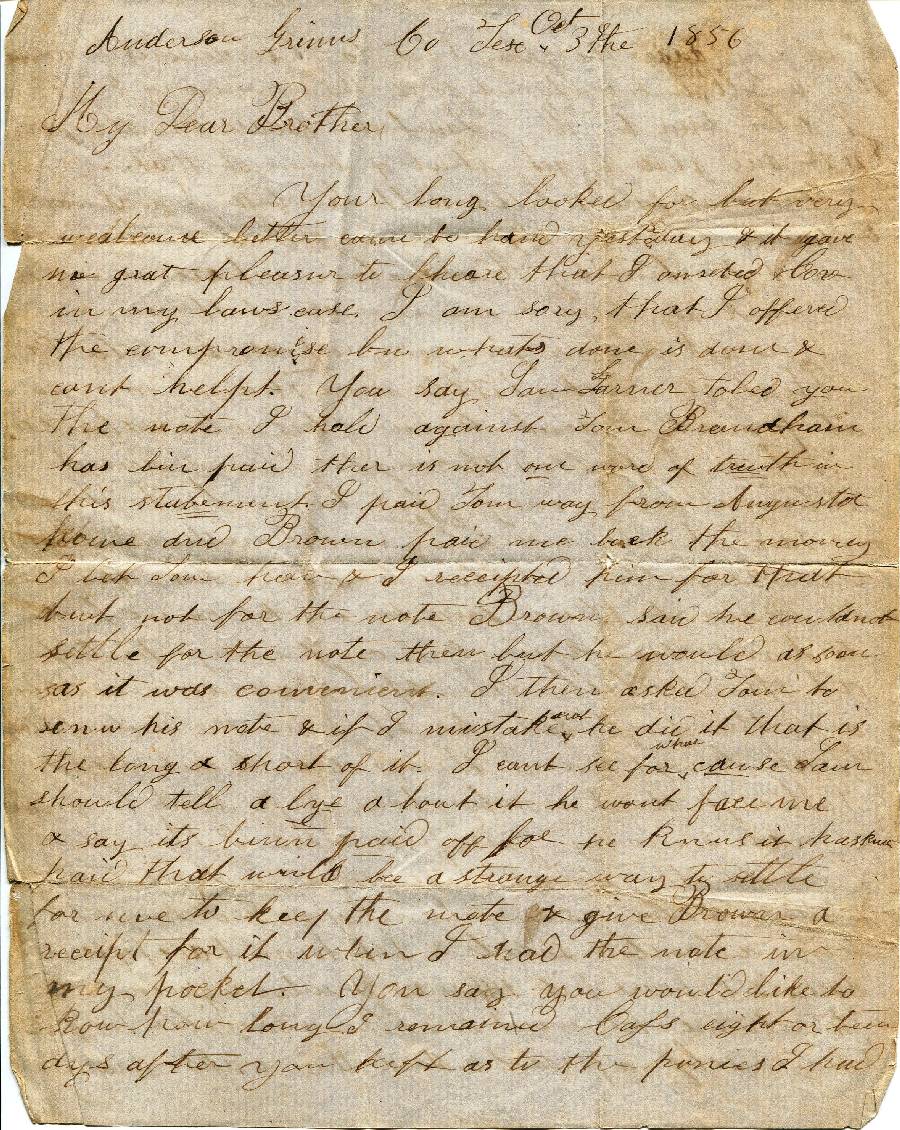 Anderson Grimes Co Tex Oct 3the 1856
My Dear Brother
Your long looked for but very
wealcome letter came to hand yestday & it gave
me grat pleasur to heare that I
in my laws case. I am sory that I offered
the compromise bu whats done is done &
cant helpt. You say Tom Farner toled you
the note I hold against Tom Brandham
has bin paid ther is not one word of treuth in
this statement I paid Tom way from Augusta
home and Brown paid me back the money
I let Tom have & I receipted him for that
but not for the note Brown said he couldnot
settle for the note then but he would as soon
as it was convenient. I then asked Tom to
renw his note & if I mistake not he did it that is
the long & short of it. I cant see for what cause Tom
should tell a lye about it he wont face me
& say its binn paid off for he knws it
paid that wuld bee a strange way to settle
for me to keep the note & give Brown a
receipt for it when I had the note in
my pocket. You say you would like to
know how long I remained Cass eight or ten
dys after you left as to the ponies I had